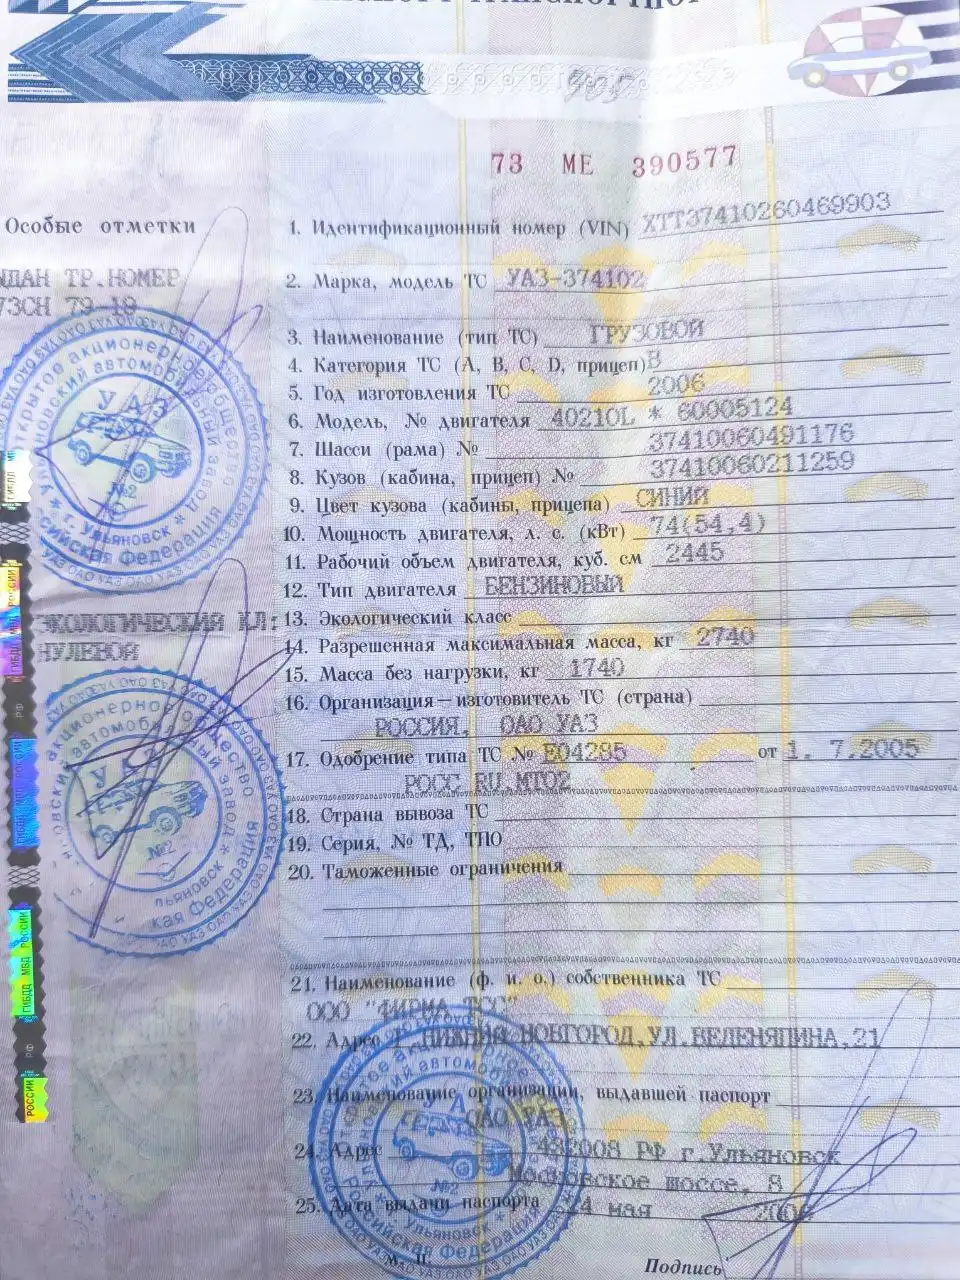 73 МЕ 390577
Особые отметки
1. Идентификационный номер (VIN) XTT37410260469903
2. Марка, модель ТС УАЗ-374102
ТР.НОМЕР
73СН 79-18
3. Наименование (тип ТС) ГРУЗОВОЙ
4. Категория ТС (А, В, С, D, прицеп) В
5. Год изготовления ТС 2006
6. Модель, № двигателя 40210L * 60005124
7. Шасси (рама) № 37410060491176
8. Кузов (кабина, прицеп) № 37410060211259
9. Цвет кузова (кабины, прицепа) СИНИЙ
10. Мощность двигателя, л. с. (кВт) 74(54,4)
11. Рабочий объем двигателя, куб. см 2445
12. Тип двигателя БЕНЗИНОВЫЙ
ЭКОЛОГИЧЕСКИЙ КЛ:
НУЛЕВОЙ
13. Экологический класс
14. Разрешенная максимальная масса, кг 2740
15. Масса без нагрузки, кг 1740
16. Организация—изготовитель ТС (страна)
РОССИЯ, ОАО УАЗ
17. Одобрение типа ТС № Е04285 от 1. 7.2005
РОСС RU.МТ02
18. Страна вывоза ТС
19. Серия, № ТД, ТПО
20. Таможенные ограничения
21. Наименование (ф. и. о.) собственника ТС
ООО "ФИРМА ТСС"
22. Адрес Г.НИЖНИЙ НОВГОРОД,УЛ.ВЕДЕНЯПИНА,21
23. Наименование организации, выдавшей паспорт
ОАО УАЗ
24. Адрес 432008 РФ г.Ульяновск
Московское шоссе, 8
25. Дата выдачи паспорта 24 мая 2006
М. П.
Подпись
УАЗ
№2
г. Ульяновск
Российская Федерация